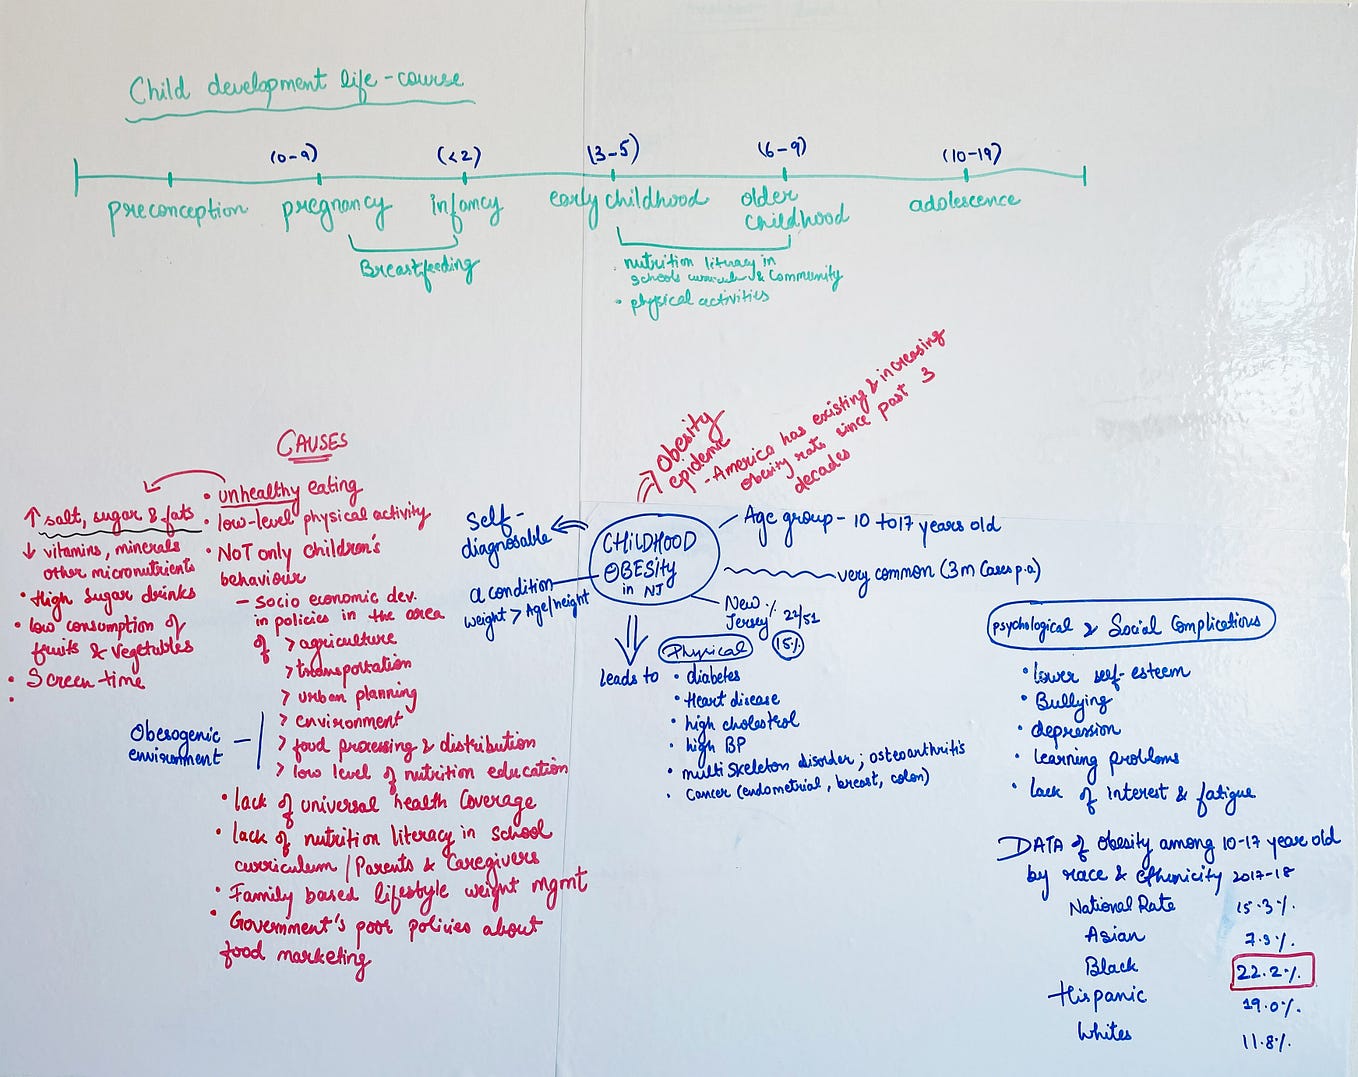 Child development life-course
(0-9)
(<2)
(3-5)
(6-9)
(10-19)
preconception
pregnancy
infancy
early childhood
older
childhood
adolescence
Breastfeeding
nutrition literacy in
schools curriculum & Community
• physical activities
CAUSES
• unhealthy eating
• low-level physical activity
• NOT only children's
behaviour
- Socio economic dev.
in policies in the area
of > agriculture
> transportation
> urban planning
> environment
> food processing & distribution
> low level of nutrition education
• lack of universal health Coverage
• lack of nutrition literacy in school
curriculum / Parents & Caregivers
• Family based lifestyle weight mgmt
• Government's poor policies about
food marketing
↑ salt, sugar & fats
↓ vitamins, minerals
other micronutrients
• High Sugar drinks
• low consumption of
fruits & vegetables
• Screen time
Obesogenic
environment
Obesity
epidemic
- America has existing & increasing
obesity rate since past 3
decades
CHILDHOOD
OBESITY
in NJ
Self-
diagnosable
a condition
weight > Age/height
Age group - 10 to 17 years old
very common (3m Cases p.a)
New
Jersey % 22/51
15%
leads to
Physical
• diabetes
• Heart disease
• high cholestrol
• high BP
• multi Skeleton disorder; osteoarthritis
• Cancer (endometrial, breast, colon)
psychological & Social Complications
• lower self-esteem
• Bullying
• depression
• learning problems
• lack of interest & fatigue
DATA of obesity among 10-17 year old
by race & ethnicity 2017-18
National Rate 15.3%
Asian 7.9%
Black 22.2%
Hispanic 19.0%
Whites 11.8%